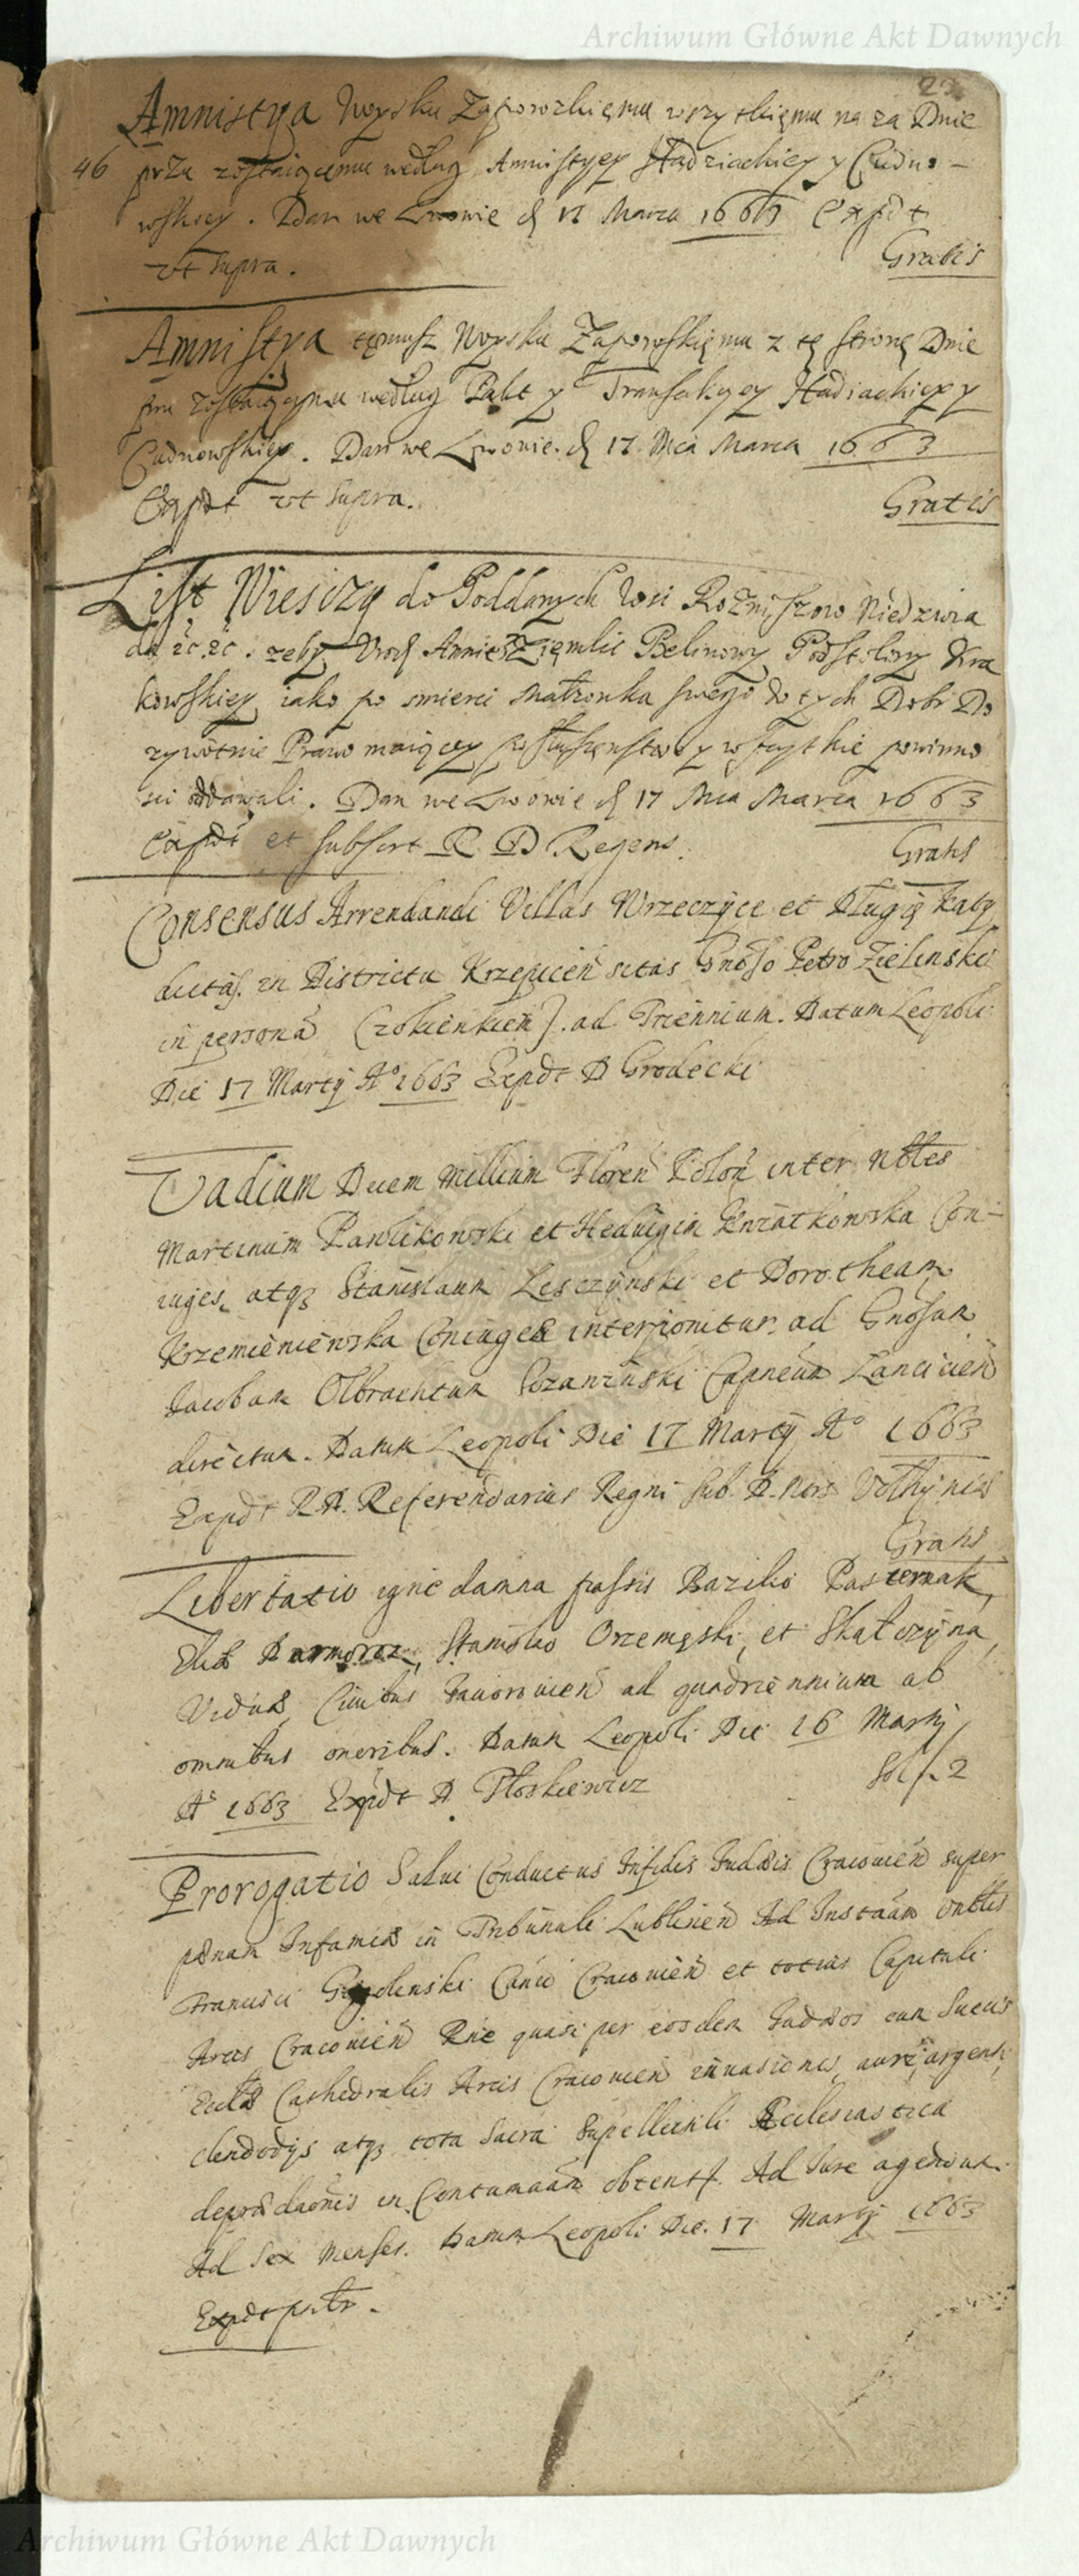 Archiwum Główne Akt Dawnych
Amnistya Woysku Zaporozkięmu wszytkięmu na za Dnie
46 prZu zostaiącemu według Amnistyey Hadziackiey y Cudno-
wskiey. Dan we Lwowie d 17 Marca 1663 Expdt
vt supra. Gratis
Amnistya tęmusz Woysku Zaporoskięmu z tę stronę Dnie
pru zostaiącemu według Pakt y Transakcyey Hadiackiey y
Cudnowskiey. Dan we Lwowie. d 17. Mca Marca 1663
Expdt vt supra. Gratis
List Wiesczy do Poddanych wsi Rozniszow Niedzwia
da &c. &c. zeby Urod Annie Zięmlic Belinowy Podstoliny Kra
kowskiey iako po smierci Małzonka swego do tych Dobr Do
zywotnie Prawo maiącey posłuszęnstwo y wszytkie powinno
sci oddawali. Dan we Lwowie d 17 Mca Marca 1663
Expdt et subscrt R. D. Regens. Gratis
Consensus Arrendandi Villas Wrzeczyce et Długie Kąty
dictas. in Districtu Krzepicen sitas Gnoso Petro Zielinski
in persona ad Triennium. Datum Leopoli
Die 17 Martij Ao 1663 Expdt D Grodecki
Vadium Decem Millium Floren Polon inter Nbles
Martinum Pawlikowski et Heduigin Kwiatkowska Con-
iuges, atqz Stanislaum Lesczynski et Dorotheam
Krzemieniewska Coniuges interponitur. ad Gnosum
Jacobum Olbrachtum Capneum Lancicien
directum. Datum Leopoli Die 17 Martij Ao 1663
Expdt R.D. Referendarius Regni sub. D. Nors Volhynies
Gratis
Libertatio igne damna passis Bazilio Pasternak,
Stanislao Orzemęski, et Skałczyna,
Vidua, Ciuibus Jauorouien ad quadriennium ab
omnibus oneribus. Datum Leopoli Die 16 Martij
Ao 1663 Expdt D. Płoskiewicz Sol f. 2
Prorogatio Salui Conductus Infidis Judæis Cracouien super
pænam Infamiæ in Tribunali Lublinen Ad Instaam Vnbles
Francisci Canci Cracouien et totius Capituli
Arcis Cracouien Rne quasi per eosdem Judæos cum Suecis
Eccla Cathedralis Arcis Cracouien inuasionis, auri, argenti
clendodijs atqz tota Sacra Supellectili Ecclesiastica
deprædaonis in Contumaam obtent. Ad Jure agendum.
Ad Sex Menses. Datum Leopoli Die. 17 Martij 1663
Expdt
Archiwum Główne Akt Dawnych